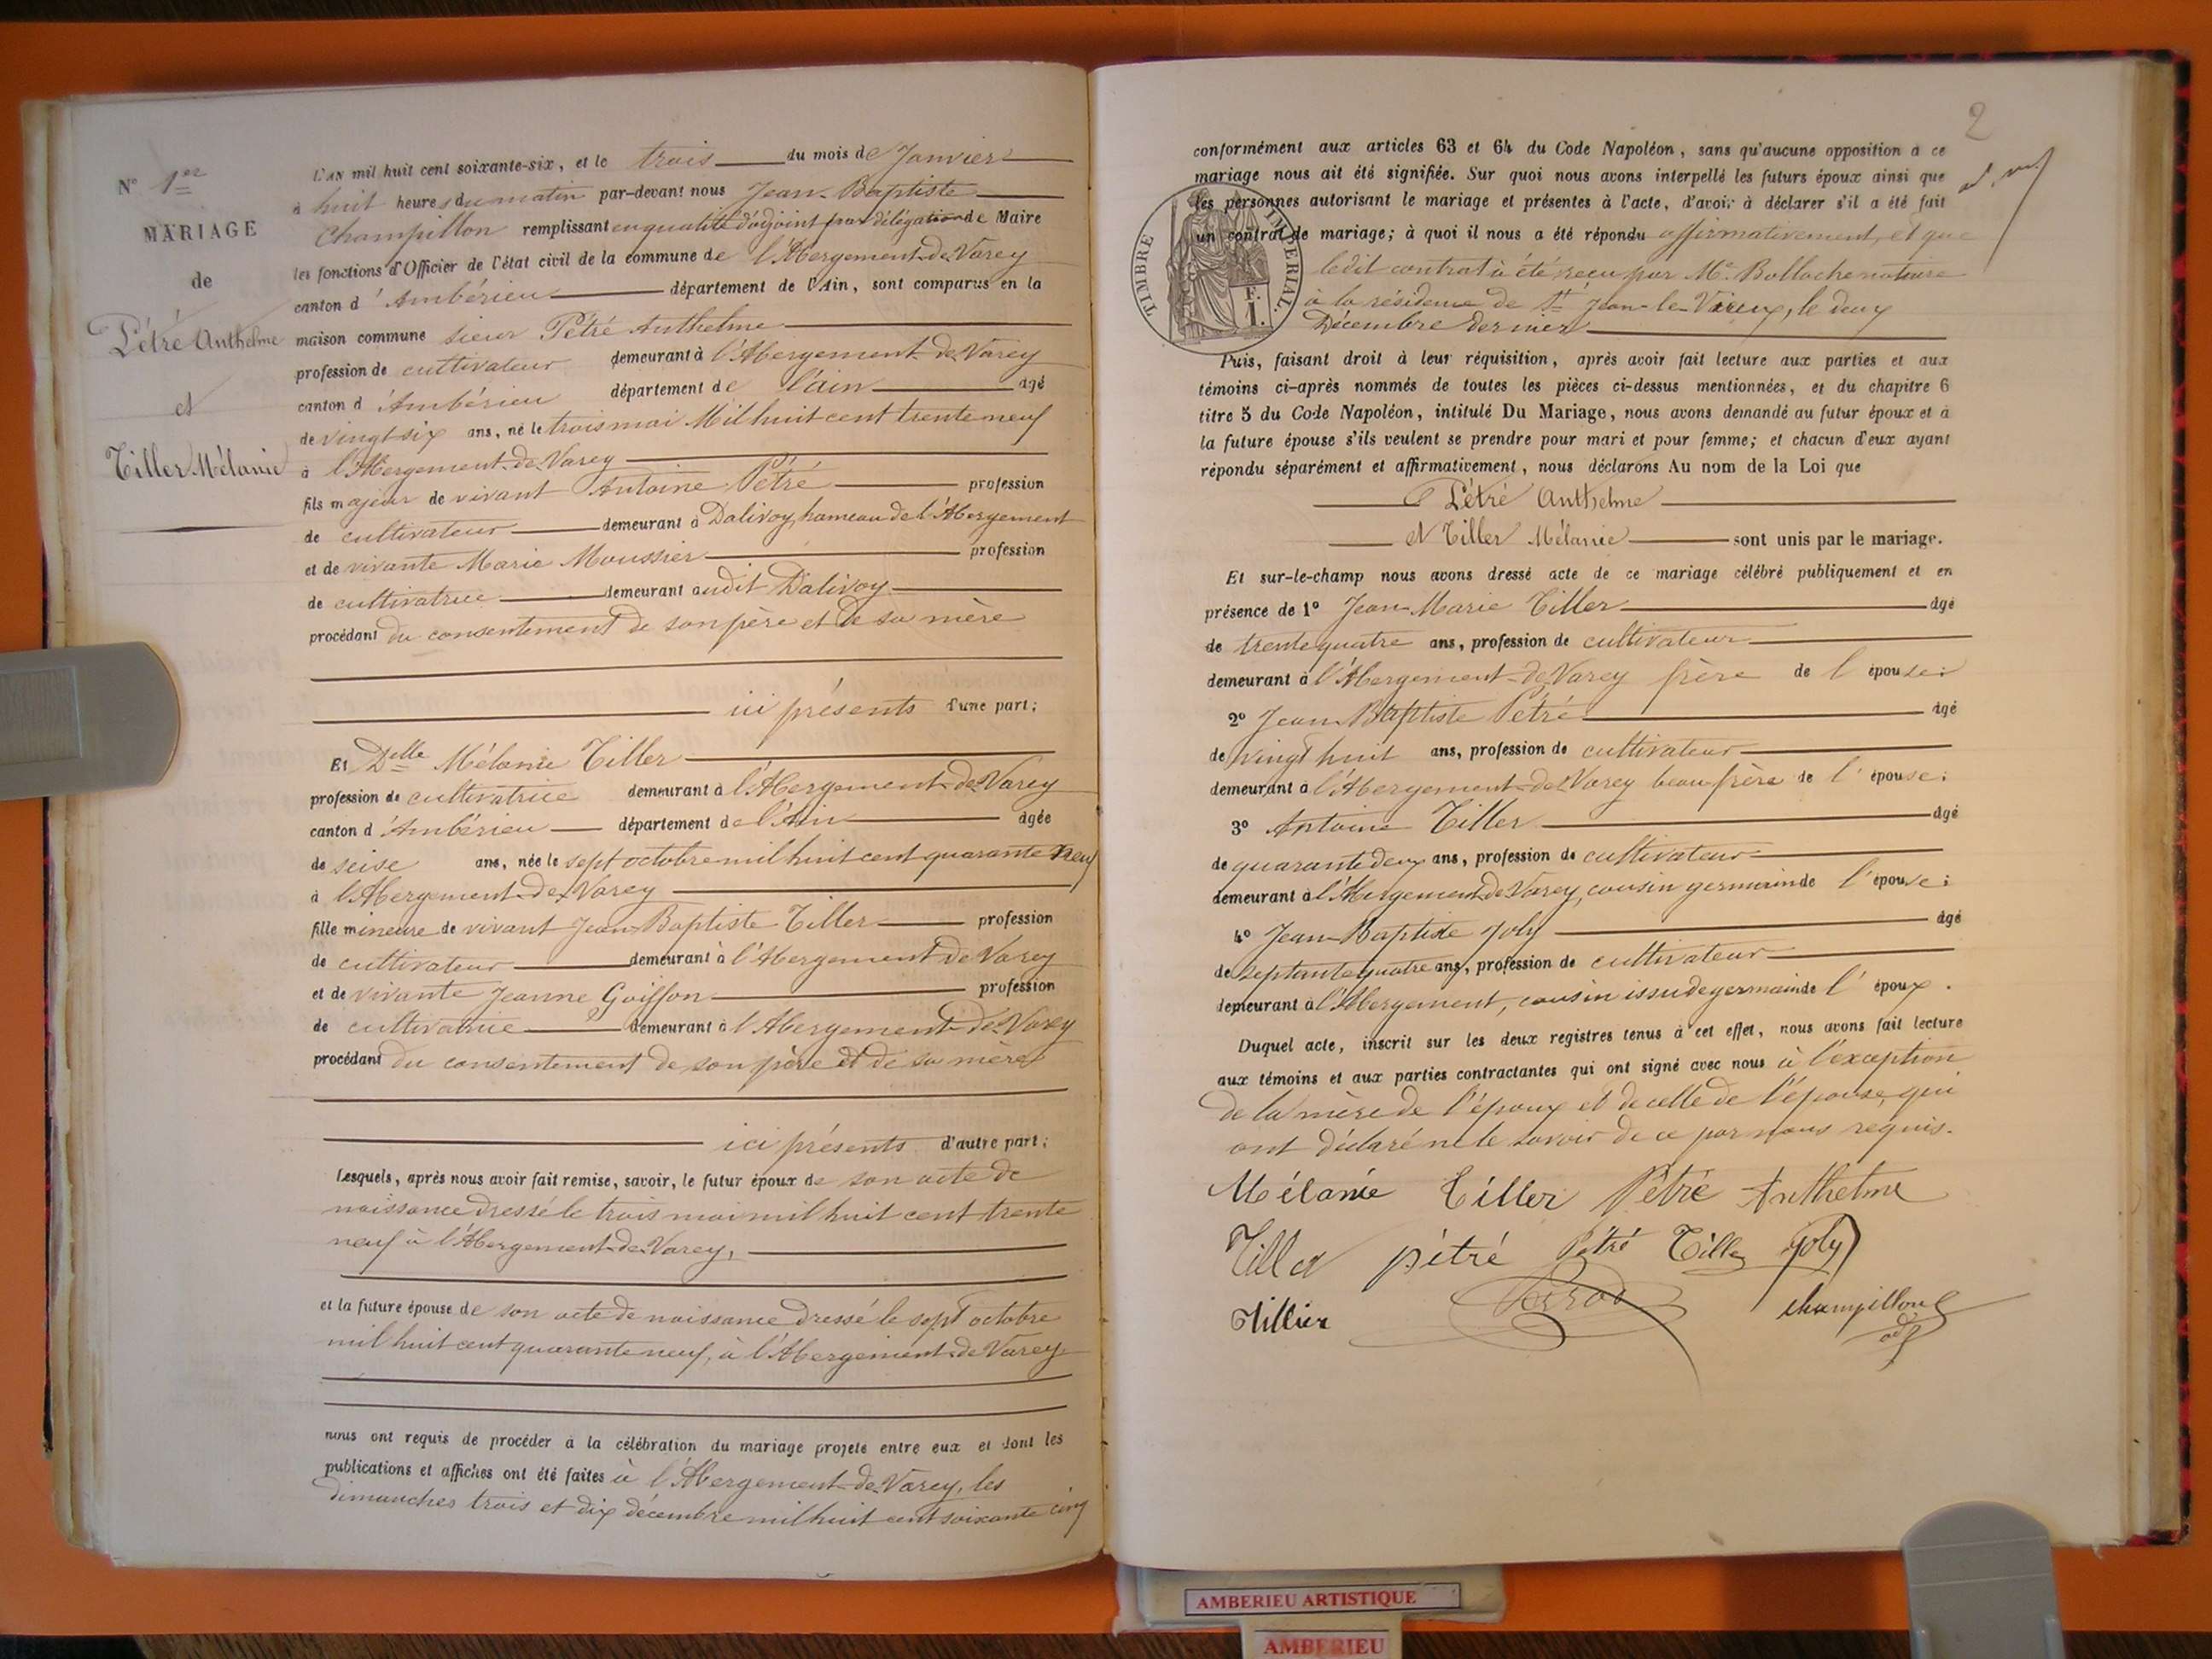 N° 1er
MARIAGE
de
Pétré Anthelme
et
Tiller Mélanie
L'AN mil huit cent soixante-six, et le trois du mois de Janvier
à huit heures du matin par-devant nous Jean-Baptiste
Champillon remplissant en qualité d'adjoint par délégation de Maire
les fonctions d'Officier de l'état civil de la commune de l'Abergement-de-Varey
canton d'Ambérieu département de l'Ain, sont comparus en la
maison commune sieur Pétré Anthelme
profession de cultivateur demeurant à l'Abergement-de-Varey
canton d'Ambérieu département de l'ain âgé
de vingt six ans, né le trois mai Mil huit cent trente neuf
à l'Abergement-de-Varey
fils majeur de vivant Antoine Pétré profession
de cultivateur demeurant à Dalivoy, hameau de l'Abergement
et de vivante Marie Moussier profession
de cultivatrice demeurant audit Dalivoy
procédant du consentement de son père et de sa mère
ici présents d'une part;
Et Delle Mélanie Tiller
profession de cultivatrice demeurant à l'Abergement-de-Varey
canton d'Ambérieu département de l'Ain âgée
de seise ans, née le sept octobre mil huit cent quarante neuf
à l'Abergement-de-Varey
fille mineure de vivant Jean-Baptiste Tiller profession
de cultivateur demeurant à l'Abergement de Varey
et de vivante Jeanne Goiffon profession
de cultivatrice demeurant à l'Abergement-de-Varey
procédant du consentement de son père et de sa mère
ici présents d'autre part;
Lesquels, après nous avoir fait remise, savoir, le futur époux de son acte de
naissance dressé le trois mai mil huit cent trente
neuf à l'Abergement-de-Varey,
et la future épouse de son acte de naissance dressé le sept octobre
mil huit cent quarante neuf, à l'Abergement-de-Varey
nous ont requis de procéder à la célébration du mariage projeté entre eux et dont les
publications et affiches ont été faites à l'Abergement-de-Varey, les
dimanches trois et dix décembre mil huit cent soixante cinq
2
conformément aux articles 63 et 64 du Code Napoléon, sans qu'aucune opposition à ce
mariage nous ait été signifiée. Sur quoi nous avons interpellé les futurs époux ainsi que
les personnes autorisant le mariage et présentes à l'acte, d'avoir à déclarer s'il a été fait
un contrat de mariage; à quoi il nous a été répondu affirmativement, et que
TIMBRE IMPERIAL.
F.
1.
ledit contrat à été reçu par Me Bollache notaire
à la résidence de St Jean-le-Vieux, le deux
Décembre dernier
Puis, faisant droit à leur réquisition, après avoir fait lecture aux parties et aux
témoins ci-après nommés de toutes les pièces ci-dessus mentionnées, et du chapitre 6
titre 5 du Code Napoléon, intitulé Du Mariage, nous avons demandé au futur époux et à
la future épouse s'ils veulent se prendre pour mari et pour femme; et chacun d'eux ayant
répondu séparément et affirmativement, nous déclarons Au nom de la Loi que
Pétré Anthelme
et Tiller Mélanie sont unis par le mariage.
Et sur-le-champ nous avons dressé acte de ce mariage célébré publiquement et en
présence de 1° Jean-Marie Tiller âgé
de trente quatre ans, profession de cultivateur
demeurant à l'Abergement-de-Varey frère de l'épouse;
2° Jean Baptiste Pétré âgé
de vingt huit ans, profession de cultivateur
demeurant à l'Abergement-de-Varey beau frère de l'épouse;
3° Antoine Tiller âgé
de quarante deux ans, profession de cultivateur
demeurant à l'Abergement-de-Varey, cousin germain de l'épouse;
4° Jean-Baptiste Joly âgé
de septante quatre ans, profession de cultivateur
demeurant à l'Abergement, cousin issu de germain de l'époux.
Duquel acte, inscrit sur les deux registres tenus à cet effet, nous avons fait lecture
aux témoins et aux parties contractantes qui ont signé avec nous à l'exception
de la mère de l'époux et de celle de l'épouse, qui
ont déclaré ne le savoir de ce par nous requis.
Mélanie Tiller Pétré Anthelme
Tiller pétré Pétré Tiller Joly
Tillier champillon
adj
AMBERIEU ARTISTIQUE
AMBERIEU